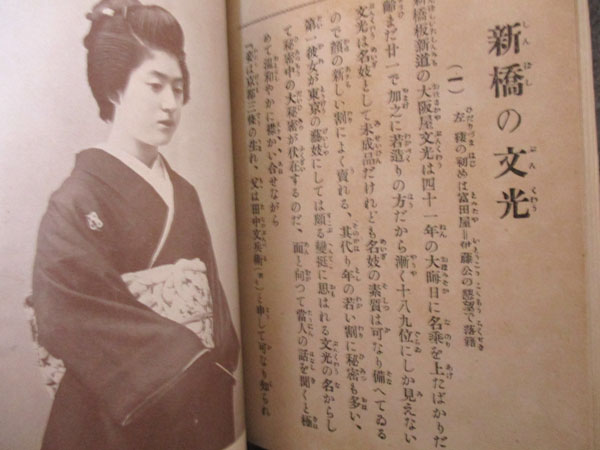 新橋の文光
(一) 左褄の初めは富田屋=伊藤公の懇望で落籍
新橋板新道の大阪屋文光は四十一年の大晦日に名乘を上たばかりだ
齢まだ廿一で加之に若造りの方だから漸く十八九位にしか見えない
文光は名妓として未成品だけれども名妓の素質は可なり備へてゐる
ので顔の新しい割によく賣れる、其代り年の若い割に秘密も多い、
第一彼女が東京の藝妓にしては頗る變挺に思はれる文光の名からし
て秘密中の大秘密が伏在するのだ、面と向つて當人の話を聞くと極
めて温和やかに襟かい合せながら
『妾は京都三條の生れ、父は田中文兵衛と申して可なり知られ